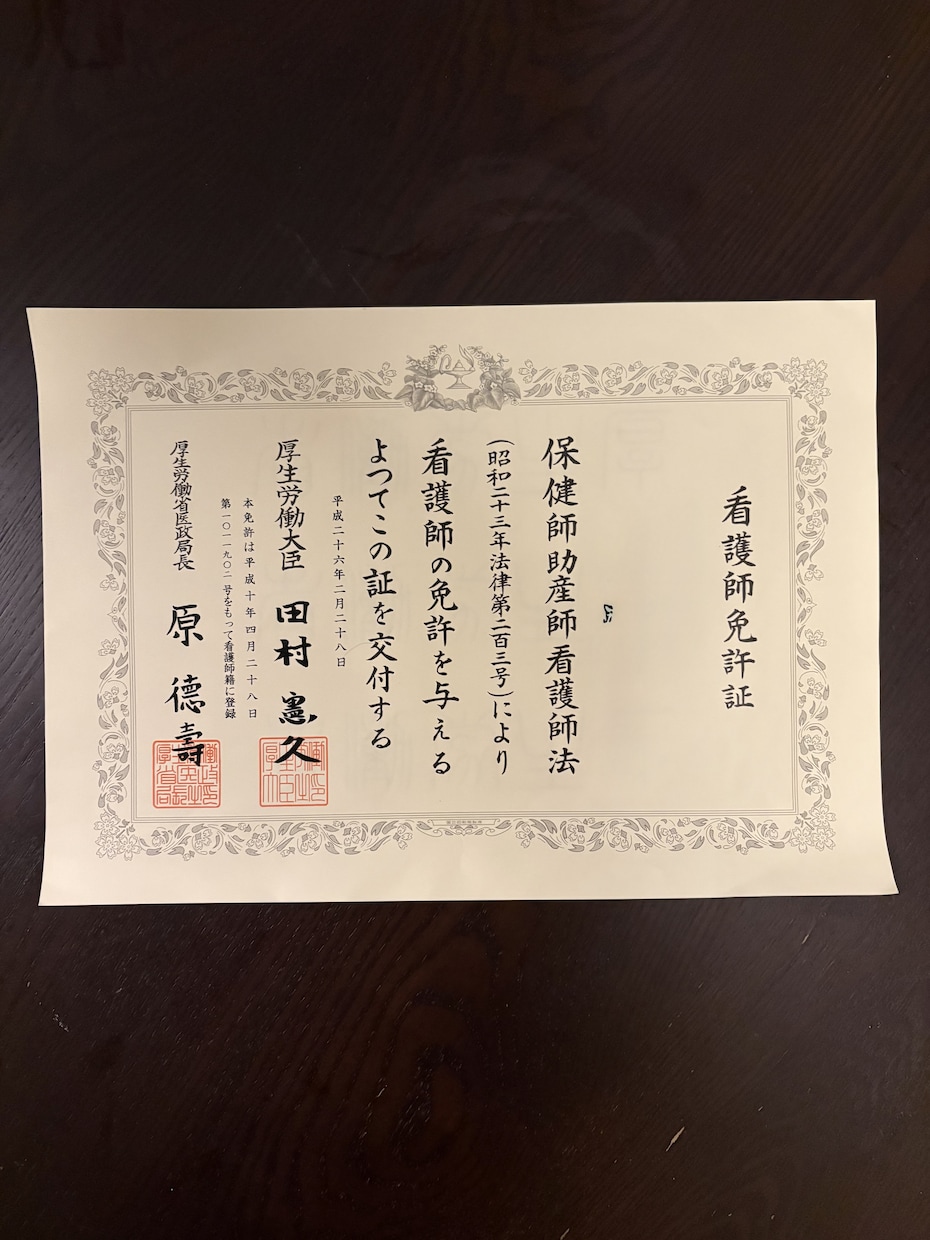 看護師免許証
保健師助産師看護師法
(昭和二十三年法律第二百三号)により
看護師の免許を与える
よつてこの証を交付する
平成二十六年二月二十八日
厚生労働大臣 田村憲久
本免許は平成十年四月二十八日
第一〇一一九〇二号をもって看護師籍に登録
厚生労働省医政局長 原德壽